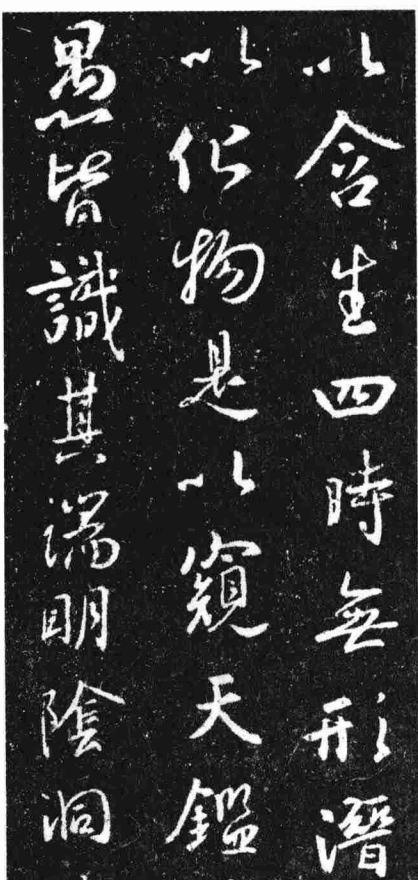 以含生四時無形潛
以化物是以窺天鑑
愚皆識其端明陰洞